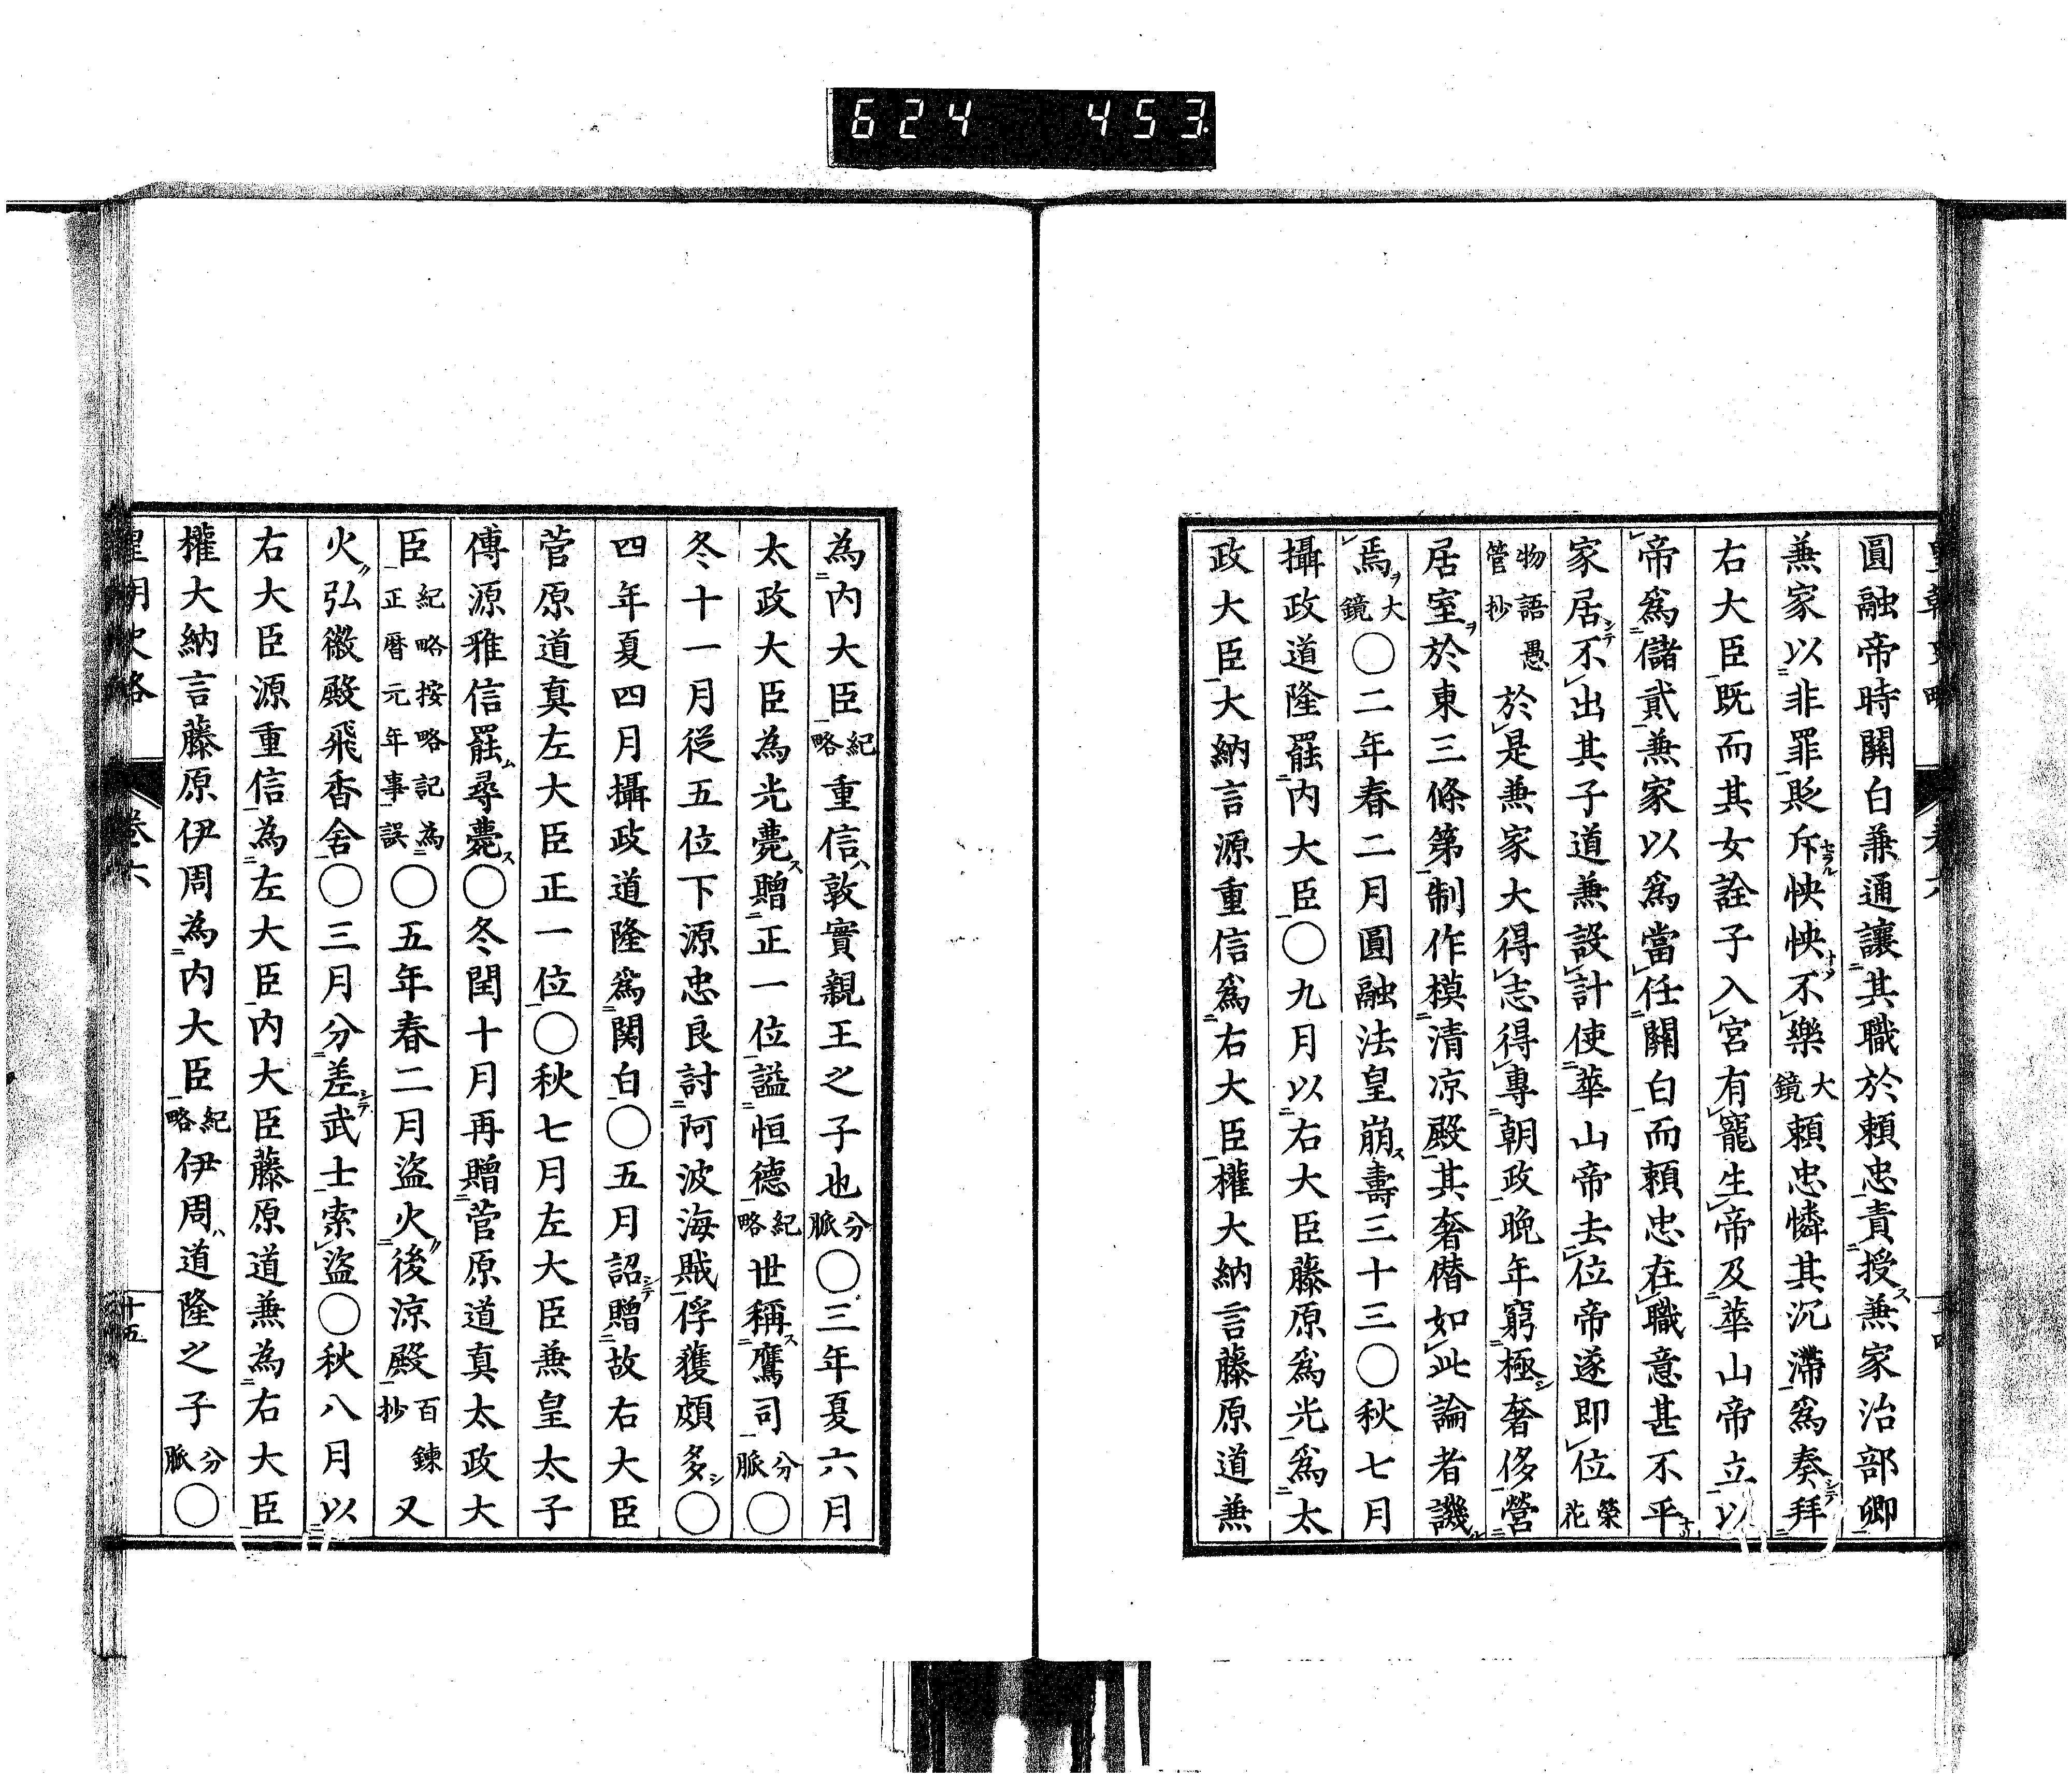 624 453
圓融帝時關白兼通讓其職於賴忠責授兼家治部卿
兼家以非罪貶斥セラル怏怏ナリ不樂大鏡賴忠憐其沉滯爲奏シテ拜
右大臣既而其女詮子入宮有寵生帝及華山帝立以
帝爲儲貳兼家以爲當任關白而賴忠在職意甚不平ナリ
家居シテ不出其子道兼設計使華山帝去位帝遂即位榮花
物語愚管抄於是兼家大得志得專朝政晚年窮極シ奢侈營
居室ヲ於東三條第制作模清凉殿其奢僭如此論者譏ル
焉ヲ大鏡○二年春二月圓融法皇崩ス壽三十三○秋七月
攝政道隆罷內大臣○九月以右大臣藤原爲光爲太
政大臣大納言源重信爲右大臣權大納言藤原道兼
為內大臣紀略重信ハ敦實親王之子也分脈○三年夏六月
太政大臣為光薨ス贈正一位謚恒德紀略世稱ス鷹司分脈○
冬十一月從五位下源忠良討阿波海賊俘獲頗多シ○
四年夏四月攝政道隆爲関白○五月詔シテ贈故右大臣
菅原道真左大臣正一位○秋七月左大臣兼皇太子
傅源雅信罷ム尋薨ス○冬閏十月再贈菅原道真太政大
臣紀略按略記為正曆元年事誤○五年春二月盜火後凉殿百鍊抄又
火弘徽殿飛香舍○三月分差シテ武士索盜○秋八月以
右大臣源重信為左大臣內大臣藤原道兼為右大臣
權大納言藤原伊周為內大臣紀略伊周ハ道隆之子分脈○
卷六
十五